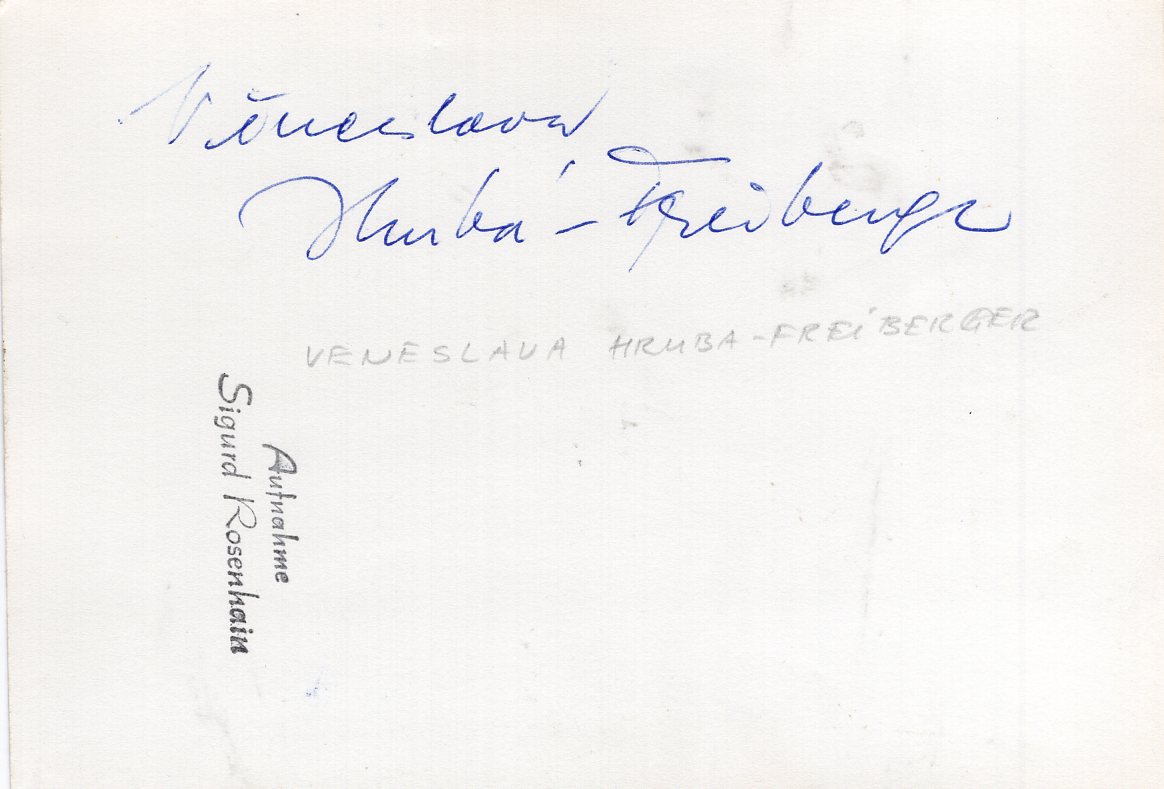 Věneslava
Hrubá-Freiberger
VENESLAVA HRUBA-FREIBERGER
Aufnahme
Sigurd Rosenhain